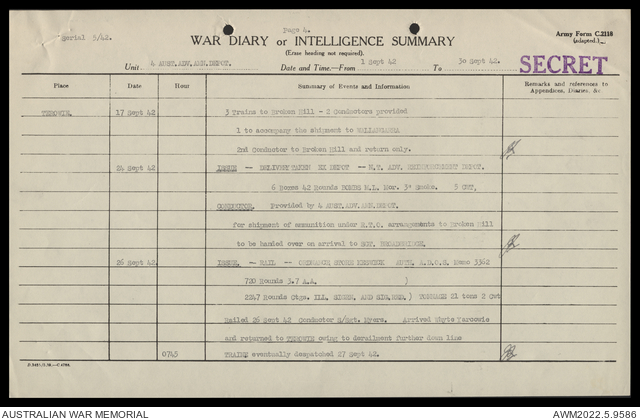 Page 4.
Serial 5/42.
WAR DIARY or INTELLIGENCE SUMMARY
Army Form C.2118
(adapted.)
(Erase heading not required).
Unit. 4 AUST.ADV.AMN.DEPOT. Date and Time.—From 1 Sept 42 To 30 Sept 42.
SECRET
Place Date Hour Summary of Events and Information Remarks and references to
Appendices, Diaries, &c
TEROWIE. 17 Sept 42 3 Trains to Broken Hill - 2 Conductors provided
1 to accompany the shipment to
2nd Conductor to Broken Hill and return only.
24 Sept 42 ISSUE — DELIVERY TAKEN EX DEPOT — N.T. ADV. DEPOT.
6 Boxes 42 Rounds BOMBS M.L. Mor. 3" Smoke. 5 CWT,
CONDUCTOR. Provided by 4 AUST.ADV.AMN.DEPOT.
for shipment of ammunition under R.T.O. arrangements to Broken Hill
to be handed over on arrival to SGT.
26 Sept 42 ISSUE — RAIL — ORDNANCE STORE KESWICK AUTH. A.D.O.S. Memo 3362
720 Rounds 3.7 A.A. )
2247 Rounds Ctgs. ILL. SIGNAL AND ) TONNAGE 21 tons 2 Cwt
Railed 26 Sept 42 Conductor S/Sgt. Myers. Arrived Whyte Yarcowie
and returned to TEROWIE owing to derailment further down line
0745 TRAINS eventually despatched 27 Sept 42.
AUSTRALIAN WAR MEMORIAL AWM2022.5.9586